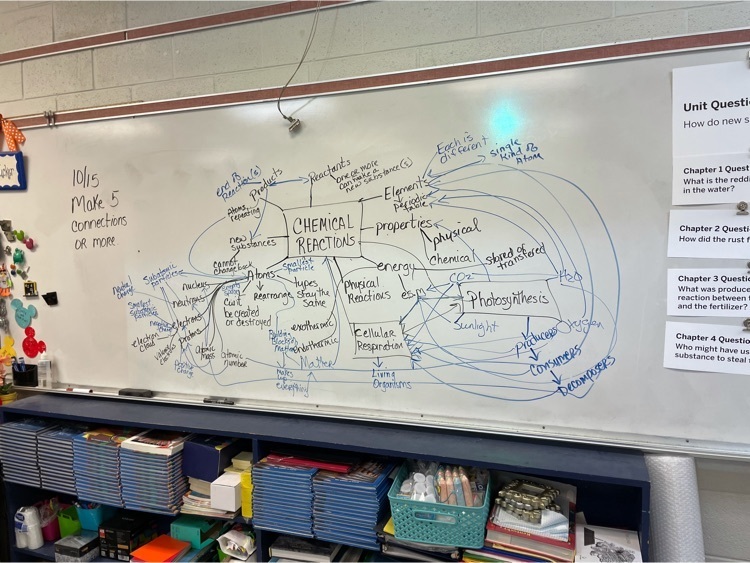 10/15
Make 5
connections
or more
end of
Reaction(s)
Products
Reactants
one or more
can make a
new substance(s)
Each is
different
single
kind of
Atom
Elements
periodic
table
Atoms
repeating
new
substances
CHEMICAL
REACTIONS
properties
physical
Chemical
cannot
change back
smallest
particle
energy
stored or
transferred
Subatomic
particles
Atoms
nucleus
neutrons
electrons
protons
electron
cloud
atomic
mass
atomic
number
Can't
be created
or destroyed
rearrange
types
stay the
same
Physical
Reactions
CO2
H2O
Photosynthesis
Sunlight
oxygen
exothermic
endothermic
Building
Blocks of
Matter
Matter
makes
everything
Cellular
Respiration
Living
Organisms
Producers
Consumers
Decomposers
Unit Questi
How do new s
Chapter 1 Quest
What is the redd
in the water?
Chapter 2 Quest
How did the rust f
Chapter 3 Questi
What was produce
reaction between
and the fertilizer?
Chapter 4 Questio
Who might have us
substance to steal